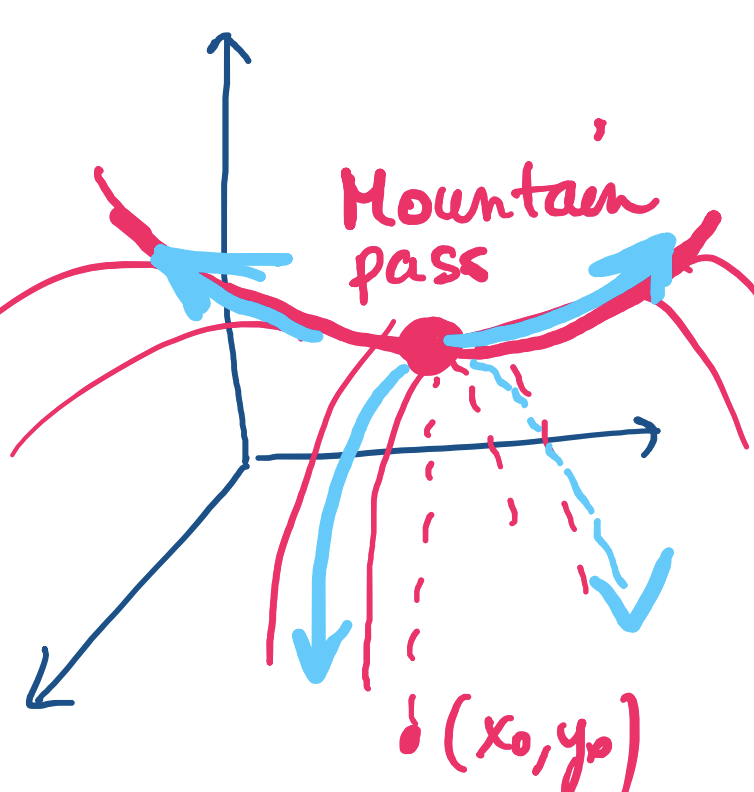 Mountain
pass
(x₀, y₀)